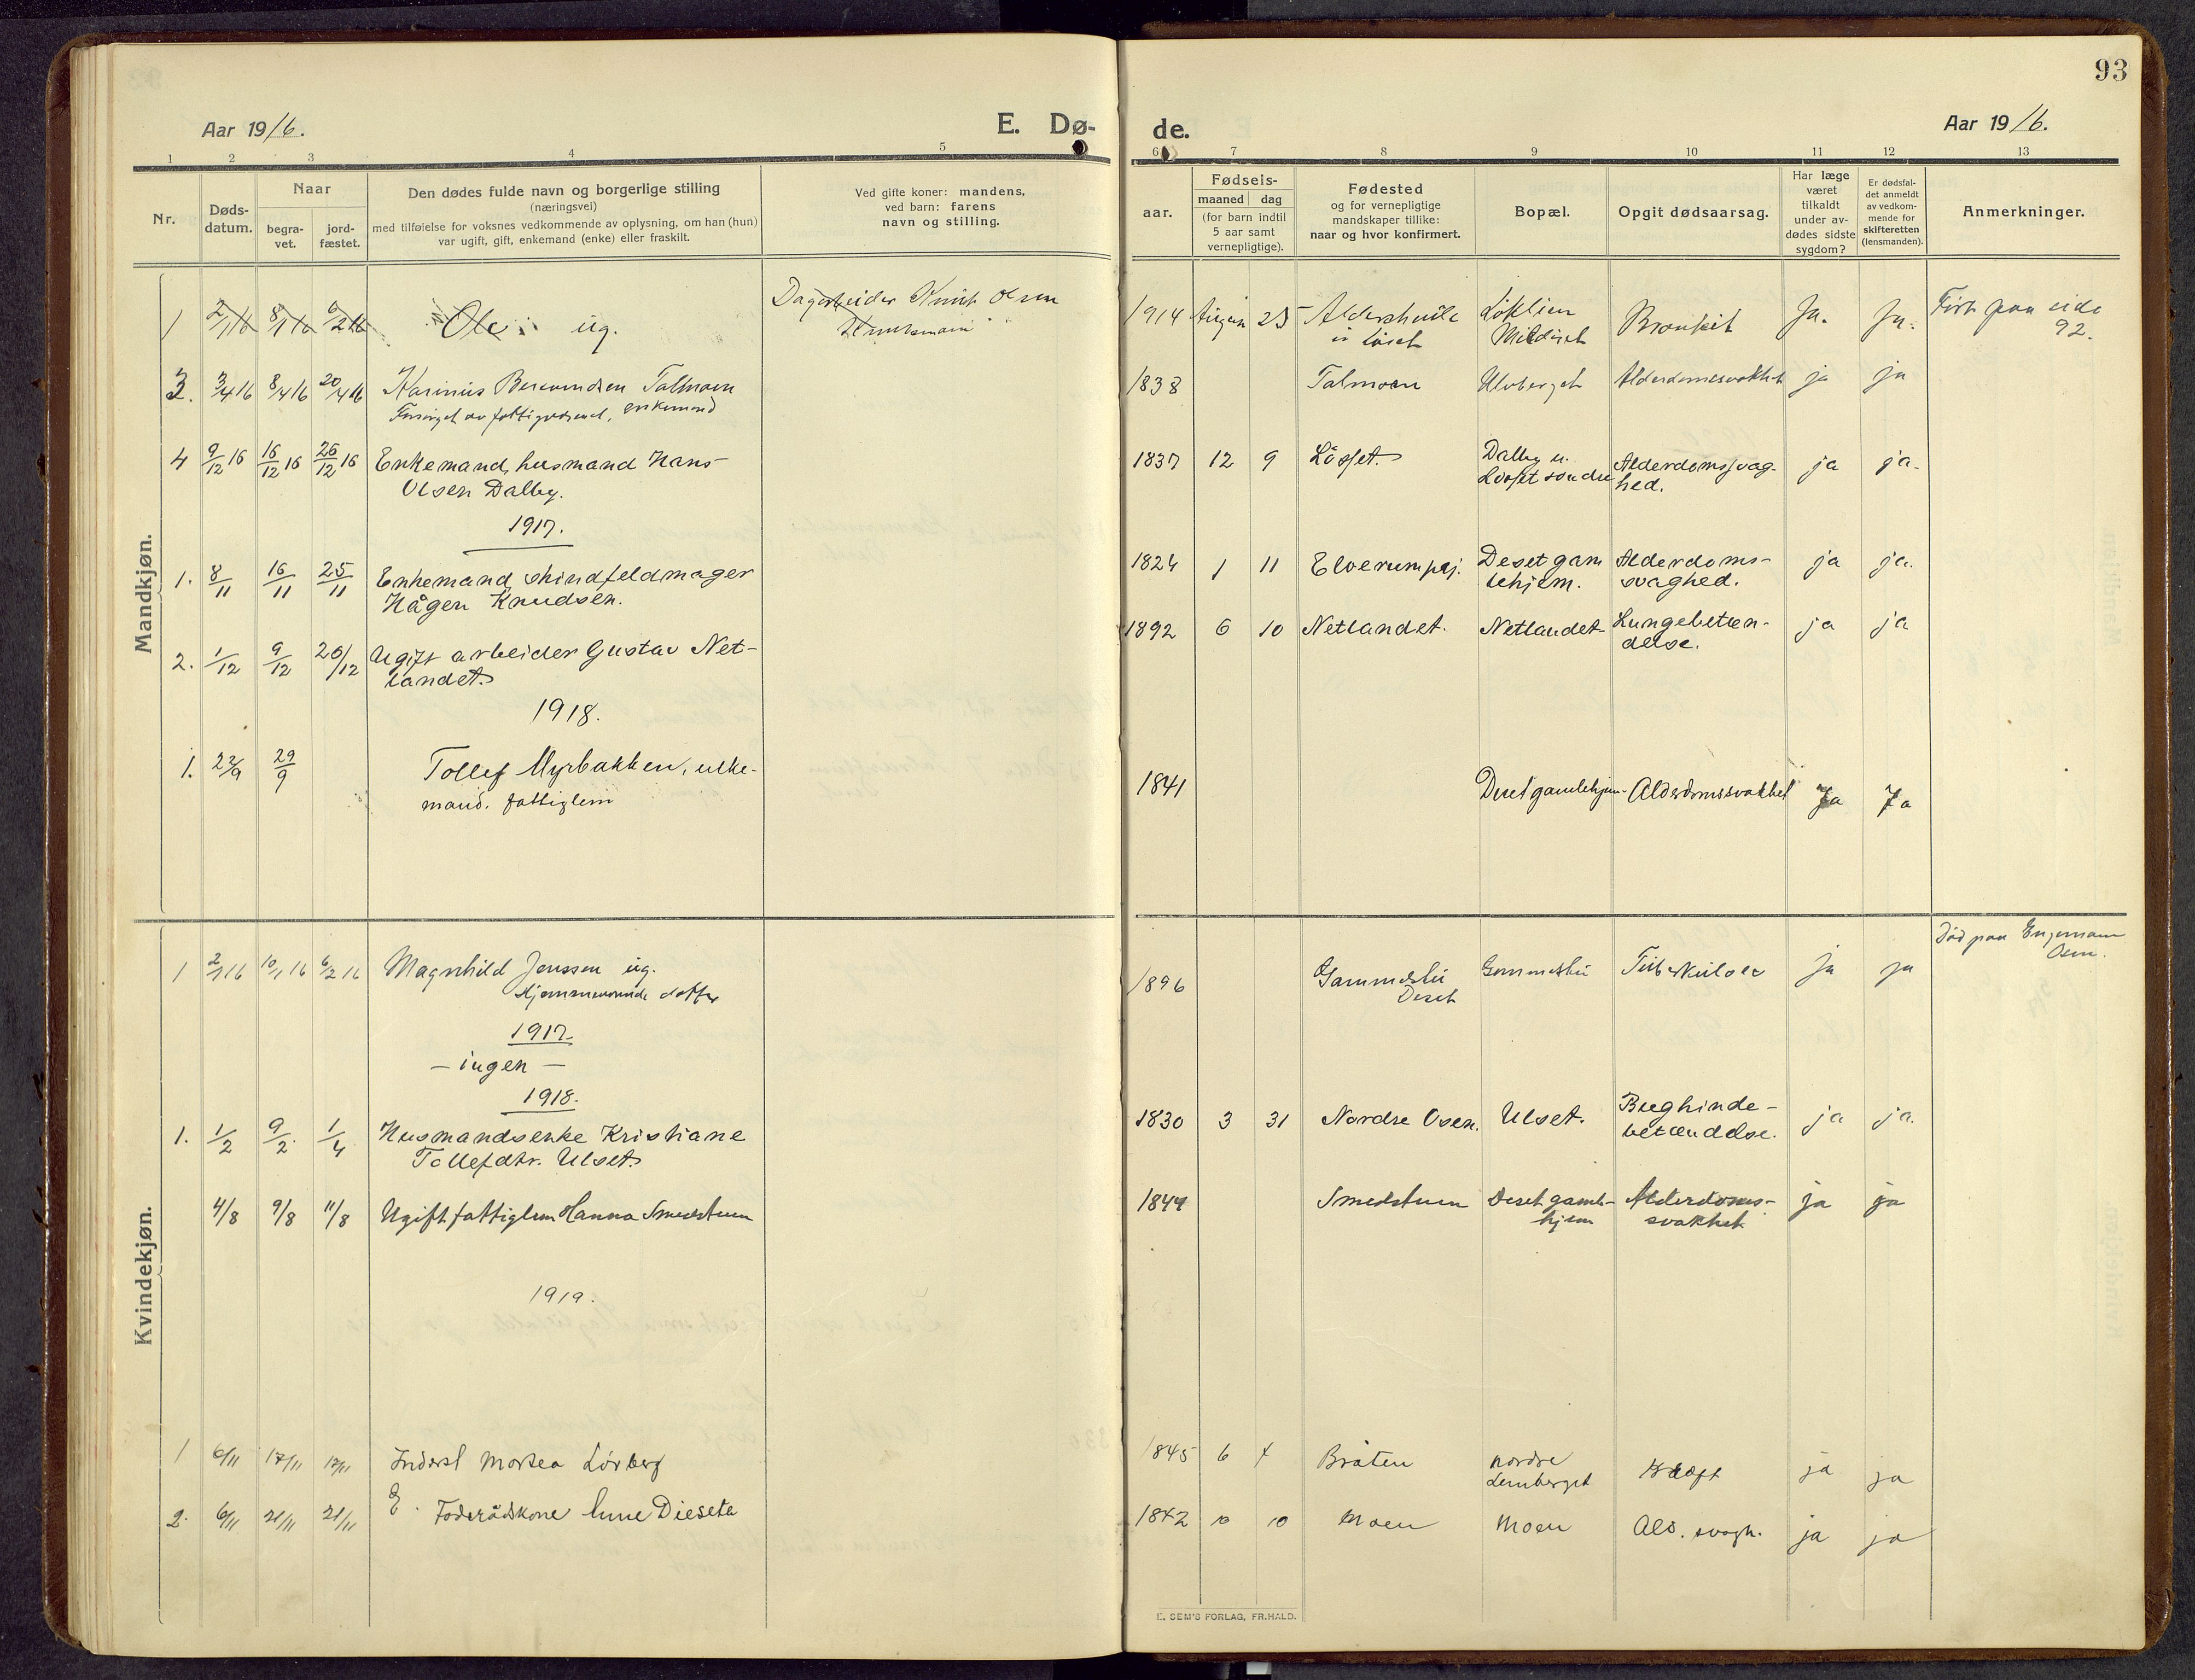 93
Aar 1916.
E. Dø-
de.
Aar 1916.
1 2 3 4 5
6 7 8 9 10 11 12 13
Nr.
Døds-
datum.
Naar
begra-
vet.
jord-
fæstet.
Den dødes fulde navn og borgerlige stilling
(næringsvei)
med tilføielse for voksnes vedkommende av oplysning, om han (hun)
var ugift, gift, enkemand (enke) eller fraskilt.
Ved gifte koner: mandens,
ved barn: farens
navn og stilling.
Fødsels-
aar.
maaned dag
(for barn indtil
5 aar samt
vernepligtige).
Fødested
og for vernepligtige
mandskaper tillike:
naar og hvor konfirmert.
Bopæl.
Opgit dødsaarsag.
Har læge
været
tilkaldt
under av-
dødes sidste
sygdom?
Er dødsfal-
det anmeldt
av vedkom-
mende for
skifteretten
(lensmanden).
Anmerkninger.
Mandkjøn.
1 2/1 16 8/1 16 6/2 16 Ole ug. Dagarbeider Knut Olsen 1914 25 Løklien Bronkit Ja. Ja. Ført paa side
92.
3. 3/4 16 8/4 16 20/4 16 Karinus Talmoen 1838 Talmoen Ulvberget Alderdomssvakhet ja ja
enkemand
4 9/12 16 16/12 16 26/12 16 Enkemand, husmand Hans 1837 12 9 Løsset. Dalby u. Alderdomssvag- ja ja.
Olsen Dalby. Løsset søndre hed.
1917.
1. 8/11 16/11 25/11 Enkemand, skindfeldmager 1824 1 11 Elverum prj. Deset gam Alderdoms- ja ja.
Hågen Knudsen. lehjem. svaghed.
2. 1/12 9/12 26/12 Ugift arbeider Gustav Net- 1892 6 10 Netlandet. Netlandet Lungebetæn- ja ja
landet. delse.
1918.
1. 22/9 29/9 Tollef Myrbakken, enke- 1841 Deset gamlehjem. Alderdomssvakhet Ja Ja
mand. fattiglem
Kvindekjøn.
1 2/1 16 10/1 16 6/2 16 Magnhild Jenssen ug. 1896 Gammelstu Gammelstu Tuberkulose ja ja Død paa Engemoen
Hjemmeværende datter Deset Osen.
1917.
- ingen -
1918.
1. 1/2 9/2. 1/4 Husmandsenke Kristiane 1830 3 31 Nordre Osen. Ulset. Bughinde- ja ja.
Tollefdtr. Ulset. betændelse.
4/8 9/8 11/8 Ugift fattiglem Hanna Smedstuen 1844 Smedstuen Deset gamle- Alderdoms- ja ja
hjem svakhet
1919.
1 6/11 17/11 17/11 Inderst Martea Lørberg 1845 6 4 Bråten nordre Kræft ja ja
Lemberget
2. 6/11 21/11 21/11 E. Føderådskone Anne Dieseta 1842 10 10 Moen Moen Ald. svagh. ja ja
E. SEM'S FORLAG, FR.HALD.